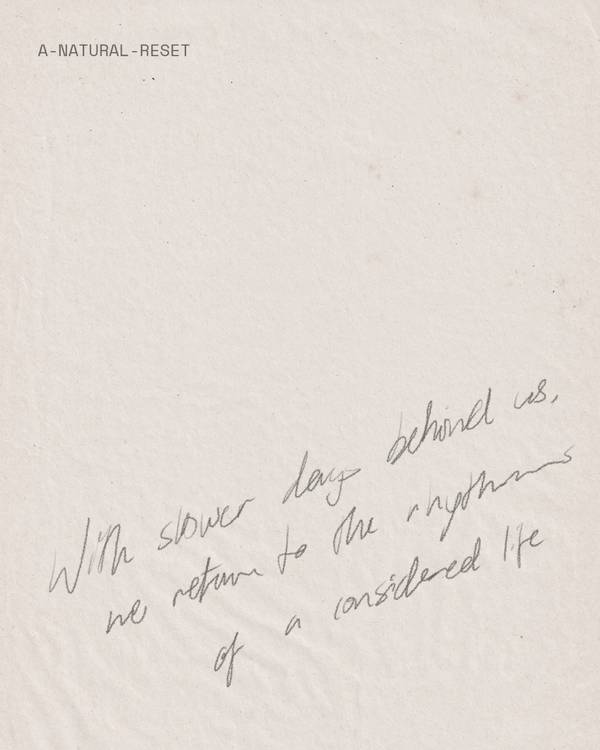 A-NATURAL-RESET
With slower days behind us,
we return to the rhythms
of a considered life